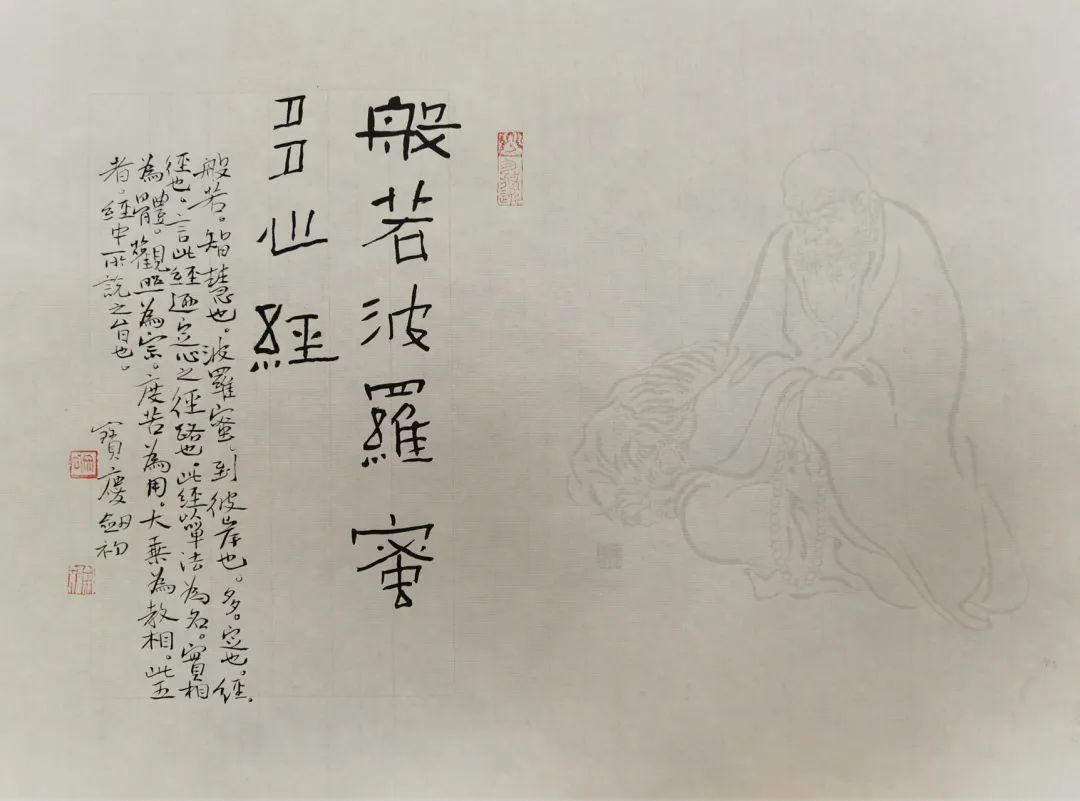 般若波羅蜜
多心經
般若。智慧也。波羅蜜、到彼岸也。多。定也。經。
徑也。言此經迺定心之徑路也。此經以單法為名。實相
為體。觀照為宗。度苦為用。大乘為教相。此五
者。經中所說之旨也。
寶慶釰初